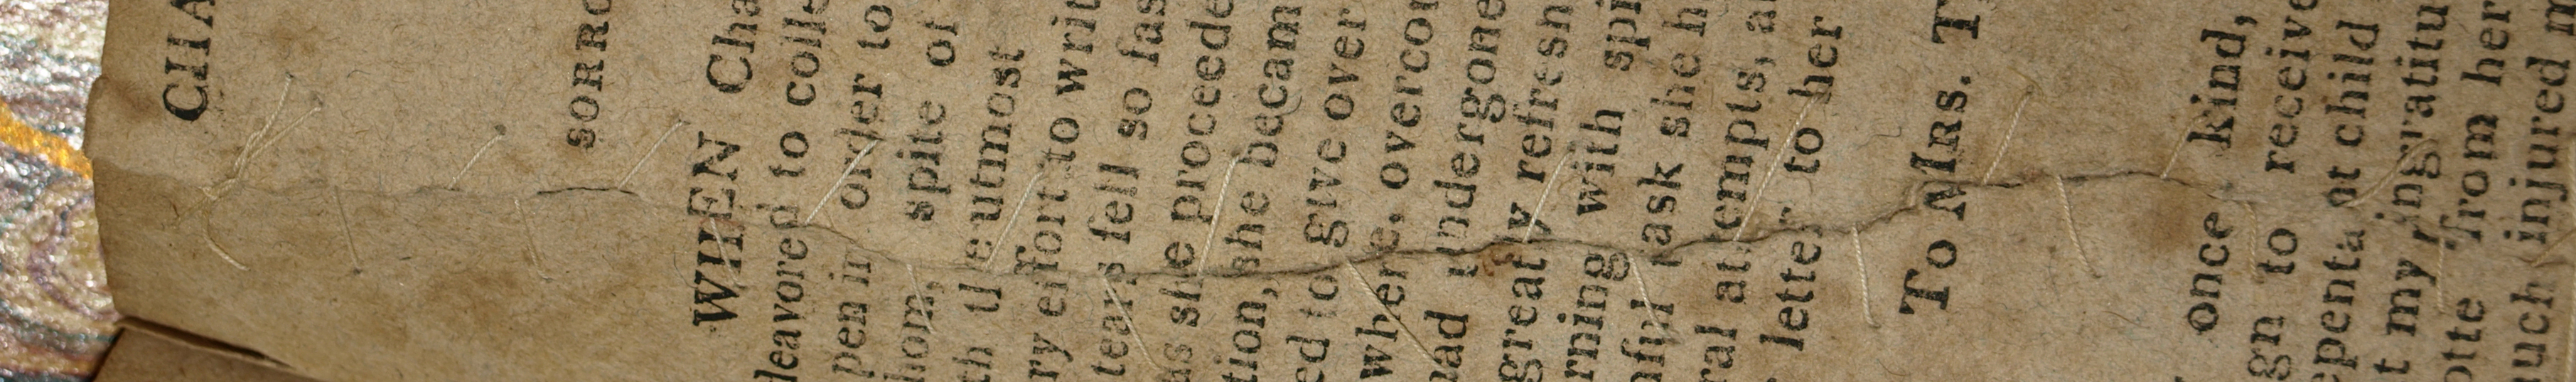 CHA
SORRO
WHEN Cha
deavored to colle
pen in order to
hom, spite of
th the utmost
ry effort to writ
tears fell so fas
as she proceede
tion, she becam
ed to give over
where, overcor
had undergone
greatly refresh
rning with spi
nful task she h
ral attempts, a
letter to her
To Mrs. T
once kind,
gn to receive
epentant child
t my ingratitu
otte from her
uch injured m